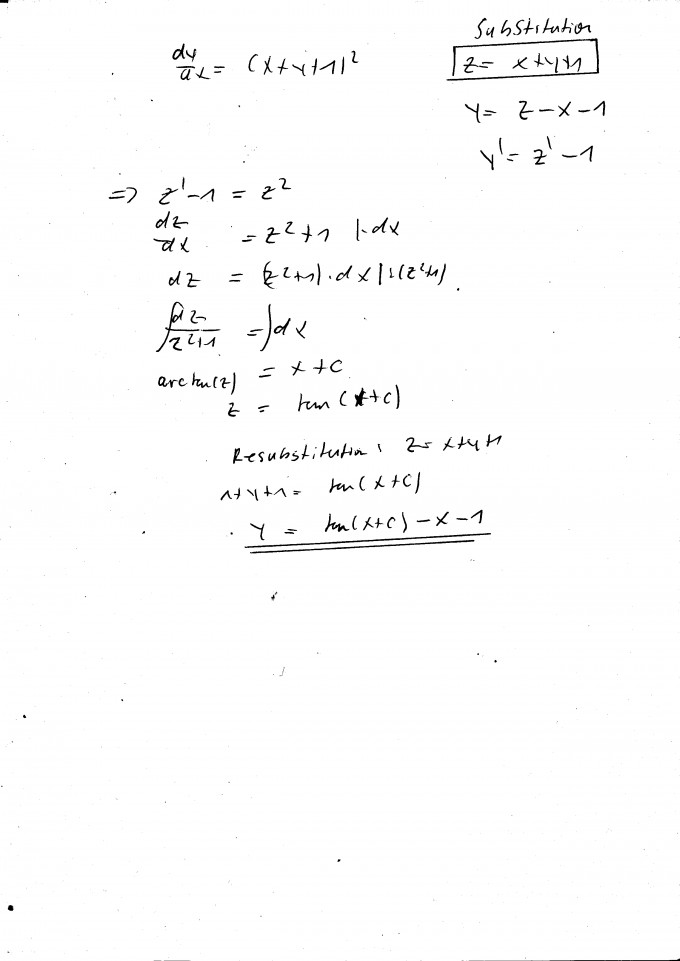 Substitution
dy/dx = (x+y+1)²
z = x+y+1
y = z-x-1
y' = z'-1
=> z'-1 = z²
dz/dx = z²+1 |·dx
dz = (z²+1)·dx |:(z²+1)
∫dz/(z²+1) = ∫dx
arctan(z) = x+c
z = tan(x+c)
Resubstitution: z = x+y+1
x+y+1 = tan(x+c)
y = tan(x+c)-x-1